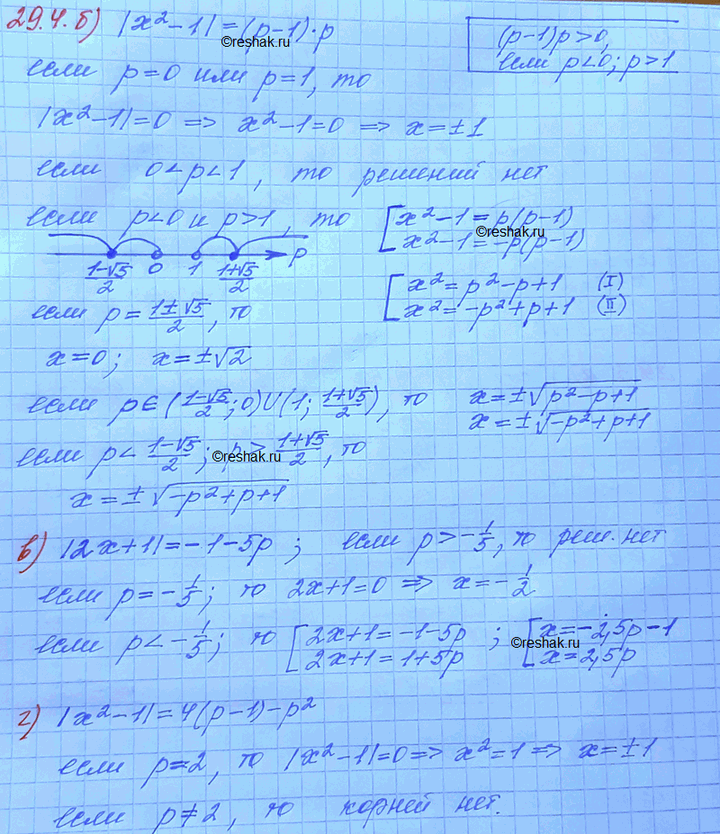 29.4. б) |x² - 1| = (p-1)·p
(p-1)p > 0,
если p < 0; p > 1
©reshak.ru
если p = 0 или p = 1, то
|x² - 1| = 0 => x² - 1 = 0 => x = ±1
если 0 < p < 1, то решений нет
если p < 0 и p > 1, то [ x² - 1 = p(p-1)
x² - 1 = -p(p-1)
©reshak.ru
(1-√5)/2 0 1 (1+√5)/2 p
[ x² = p² - p + 1 (I)
x² = -p² + p + 1 (II)
если p = (1±√5)/2, то
x = 0; x = ±√2
если p ∈ ((1-√5)/2; 0) ∪ (1; (1+√5)/2), то x = ±√(p² - p + 1)
x = ±√(-p² + p + 1)
если p < (1-√5)/2; p > (1+√5)/2, то
©reshak.ru
x = ±√(-p² + p + 1)
в) |2x + 1| = -1 - 5p; если p > -1/5, то реш. нет
если p = -1/5; то 2x + 1 = 0 => x = -1/2
если p < -1/5; то [ 2x + 1 = -1 - 5p ; [ x = -2,5p - 1
2x + 1 = 1 + 5p x = 2,5p
©reshak.ru
г) |x² - 1| = 4(p-1) - p²
если p = 2, то |x² - 1| = 0 => x² = 1 => x = ±1
если p ≠ 2, то корней нет.